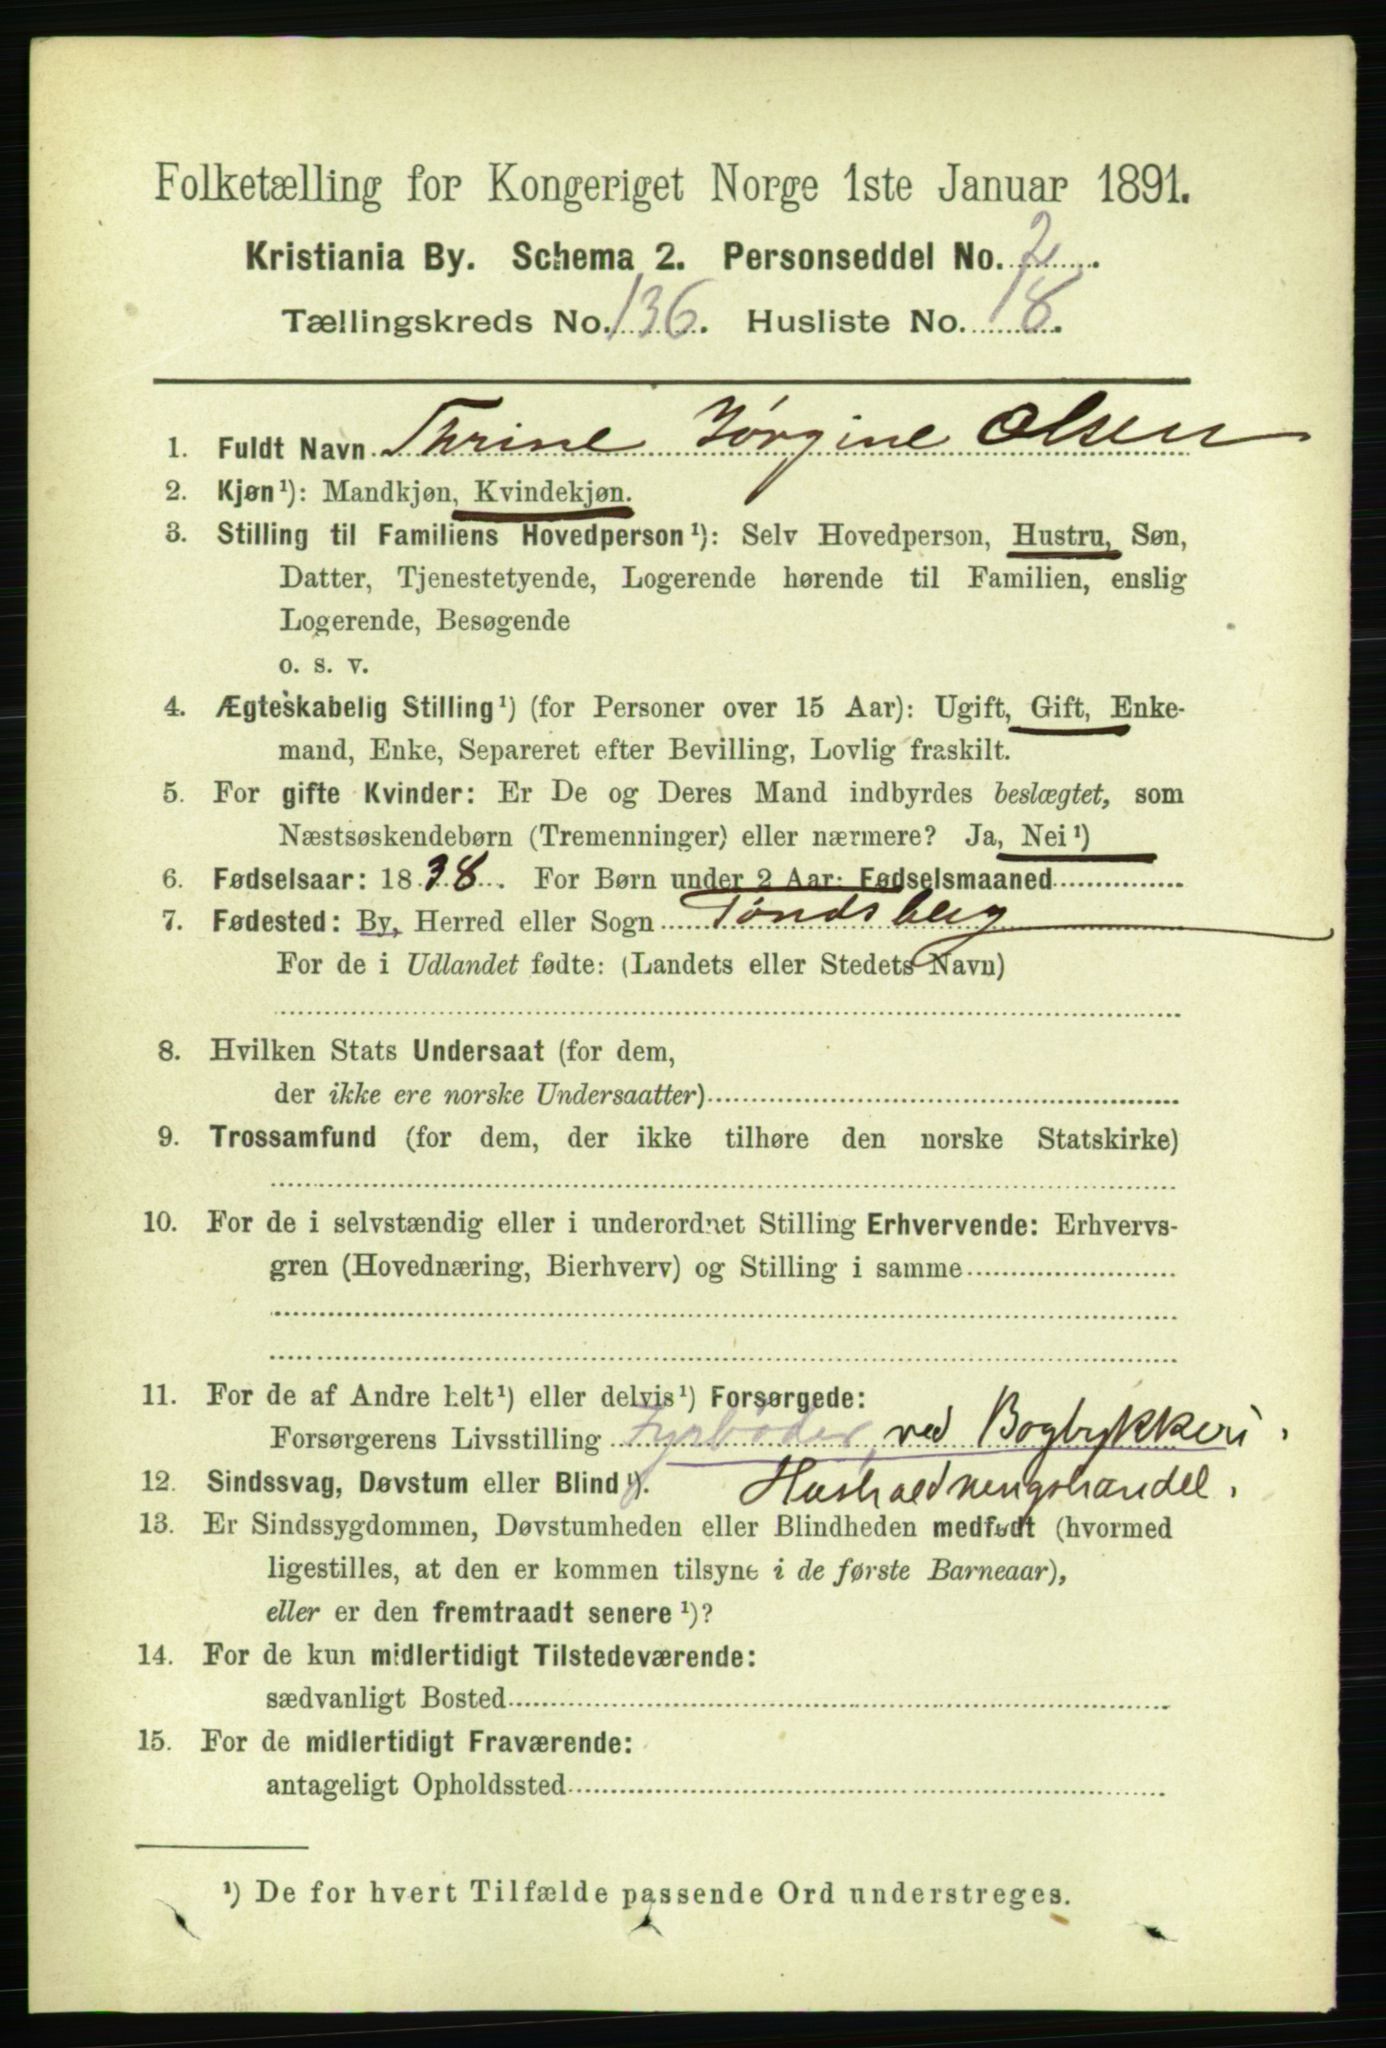 Folketælling for Kongeriget Norge 1ste Januar 1891.
Kristiania By. Schema 2. Personseddel No. 2.
Tællingskreds No. 136. Husliste No. 18.
1. Fuldt Navn Thrine Jørgine Olsen
2. Kjøn¹): Mandkjøn, Kvindekjøn.
3. Stilling til Familiens Hovedperson¹): Selv Hovedperson, Hustru, Søn,
Datter, Tjenestetyende, Logerende hørende til Familien, enslig
Logerende, Besøgende
o. s. v.
4. Ægteskabelig Stilling¹) (for Personer over 15 Aar): Ugift, Gift, Enke-
mand, Enke, Separeret efter Bevilling, Lovlig fraskilt.
5. For gifte Kvinder: Er De og Deres Mand indbyrdes beslægtet, som
Næstsøskendebørn (Tremenninger) eller nærmere? Ja, Nei¹)
6. Fødselsaar: 1838. For Børn under 2 Aar: Fødselsmaaned
7. Fødested: By, Herred eller Sogn Tøndsberg
For de i Udlandet fødte: (Landets eller Stedets Navn)
8. Hvilken Stats Undersaat (for dem,
der ikke ere norske Undersaatter)
9. Trossamfund (for dem, der ikke tilhøre den norske Statskirke)
10. For de i selvstændig eller i underordnet Stilling Erhvervende: Erhvervs-
gren (Hovednæring, Bierhverv) og Stilling i samme
11. For de af Andre helt¹) eller delvis¹) Forsørgede:
Forsørgerens Livsstilling Fyrbøder ved Bogtrykkeri.
12. Sindssvag, Døvstum eller Blind¹). Husholdningshandel.
13. Er Sindssygdommen, Døvstumheden eller Blindheden medfødt (hvormed
ligestilles, at den er kommen tilsyne i de første Barneaar),
eller er den fremtraadt senere¹)?
14. For de kun midlertidigt Tilstedeværende:
sædvanligt Bosted
15. For de midlertidigt Fraværende:
antageligt Opholdssted
¹) De for hvert Tilfælde passende Ord understreges.